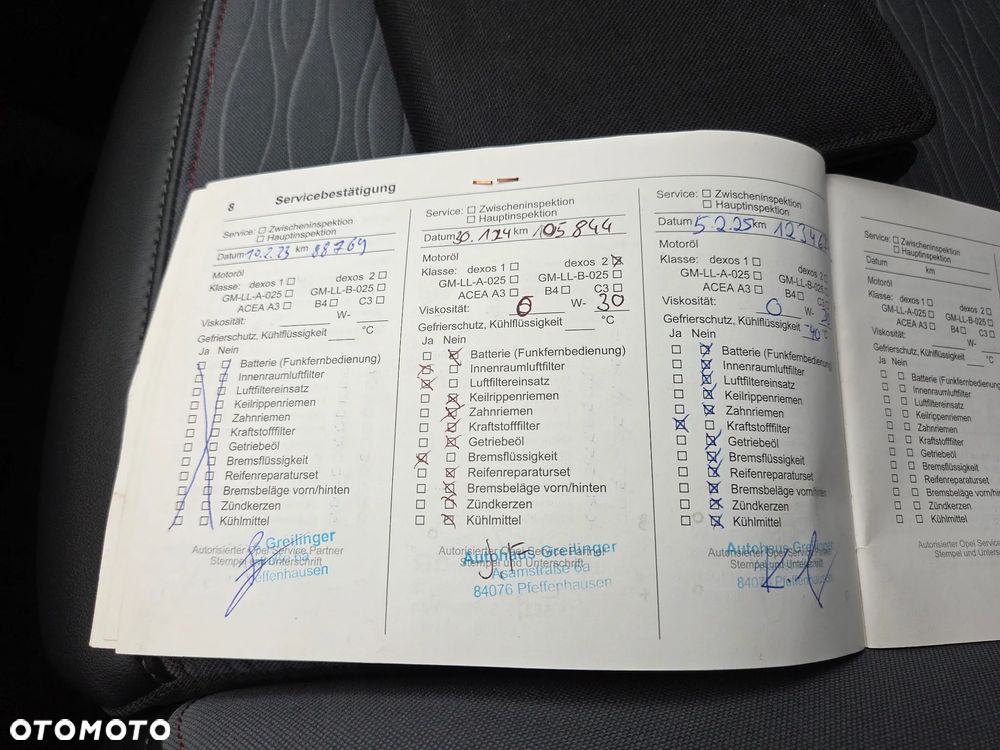 8 Servicebestätigung
Service: ☐ Zwischeninspektion
☐ Hauptinspektion
Datum 10.2.23 km 88769
Motoröl
Klasse: dexos 1 ☐ dexos 2 ☐
GM-LL-A-025 ☐ GM-LL-B-025 ☐
ACEA A3 ☐ B4 ☐ C3 ☐
Viskosität: W-
Gefrierschutz, Kühlflüssigkeit °C
Ja Nein
☐ ☐ Batterie (Funkfernbedienung)
☐ ☐ Innenraumluftfilter
☐ ☐ Luftfiltereinsatz
☐ ☐ Keilrippenriemen
☐ ☐ Zahnriemen
☐ ☐ Kraftstofffilter
☐ ☐ Getriebeöl
☐ ☐ Bremsflüssigkeit
☐ ☐ Reifenreparaturset
☐ ☐ Bremsbeläge vorn/hinten
☐ ☐ Zündkerzen
☐ ☐ Kühlmittel
Greilinger
Autorisierter Opel Service Partner
Stempel und Unterschrift
Pfeffenhausen
Service: ☐ Zwischeninspektion
☐ Hauptinspektion
Datum 30.1.24 km 105844
Motoröl
Klasse: dexos 1 ☐ dexos 2 ☒
GM-LL-A-025 ☐ GM-LL-B-025 ☐
ACEA A3 ☐ B4 ☐ C3 ☐
Viskosität: 0 W- 30
Gefrierschutz, Kühlflüssigkeit °C
Ja Nein
☐ ☒ Batterie (Funkfernbedienung)
☒ ☐ Innenraumluftfilter
☒ ☐ Luftfiltereinsatz
☐ ☒ Keilrippenriemen
☐ ☒ Zahnriemen
☐ ☒ Kraftstofffilter
☐ ☒ Getriebeöl
☒ ☐ Bremsflüssigkeit
☐ ☒ Reifenreparaturset
☐ ☒ Bremsbeläge vorn/hinten
☐ ☒ Zündkerzen
☐ ☒ Kühlmittel
Autorisierter Opel Service Partner
Autohaus Greilinger
Stempel und Unterschrift
Asamstraße 6a
84076 Pfeffenhausen
Service: ☐ Zwischeninspektion
☐ Hauptinspektion
Datum 5.2.25 km 12346
Motoröl
Klasse: dexos 1 ☐ dexos 2 ☐
GM-LL-A-025 ☐ GM-LL-B-025
ACEA A3 ☐ B4 ☐ C3
Viskosität: 0 W- 30
Gefrierschutz, Kühlflüssigkeit -40 °C
Ja Nein
☐ ☒ Batterie (Funkfernbedienung)
☐ ☒ Innenraumluftfilter
☐ ☒ Luftfiltereinsatz
☐ ☒ Keilrippenriemen
☐ ☒ Zahnriemen
☒ ☐ Kraftstofffilter
☐ ☒ Getriebeöl
☐ ☒ Bremsflüssigkeit
☐ ☒ Reifenreparaturset
☐ ☒ Bremsbeläge vorn/hinten
☐ ☒ Zündkerzen
☐ ☒ Kühlmittel
Autohaus Greilinger
Autorisierter Opel Service Partner
Stempel und Unterschrift
84076 Pfeffenhausen
Service: ☐ Zwischeninspektion
☐ Hauptinspektion
Datum km
Motoröl
Klasse: dexos 1 ☐
GM-LL-A-025 ☐ GM-LL-B
ACEA A3 ☐ B4 ☐
Viskosität: W-
Gefrierschutz, Kühlflüssigkeit
Ja Nein
☐ ☐ Batterie (Funkfernbedienu
☐ ☐ Innenraumluftfilter
☐ ☐ Luftfiltereinsatz
☐ ☐ Keilrippenriemen
☐ ☐ Zahnriemen
☐ ☐ Kraftstofffilter
☐ ☐ Getriebeöl
☐ ☐ Bremsflüssigkeit
☐ ☐ Reifenreparaturset
☐ ☐ Bremsbeläge vorn/hin
☐ ☐ Zündkerzen
☐ ☐ Kühlmittel
Autorisierter Opel Service
Stempel und Unters
OTOMOTO